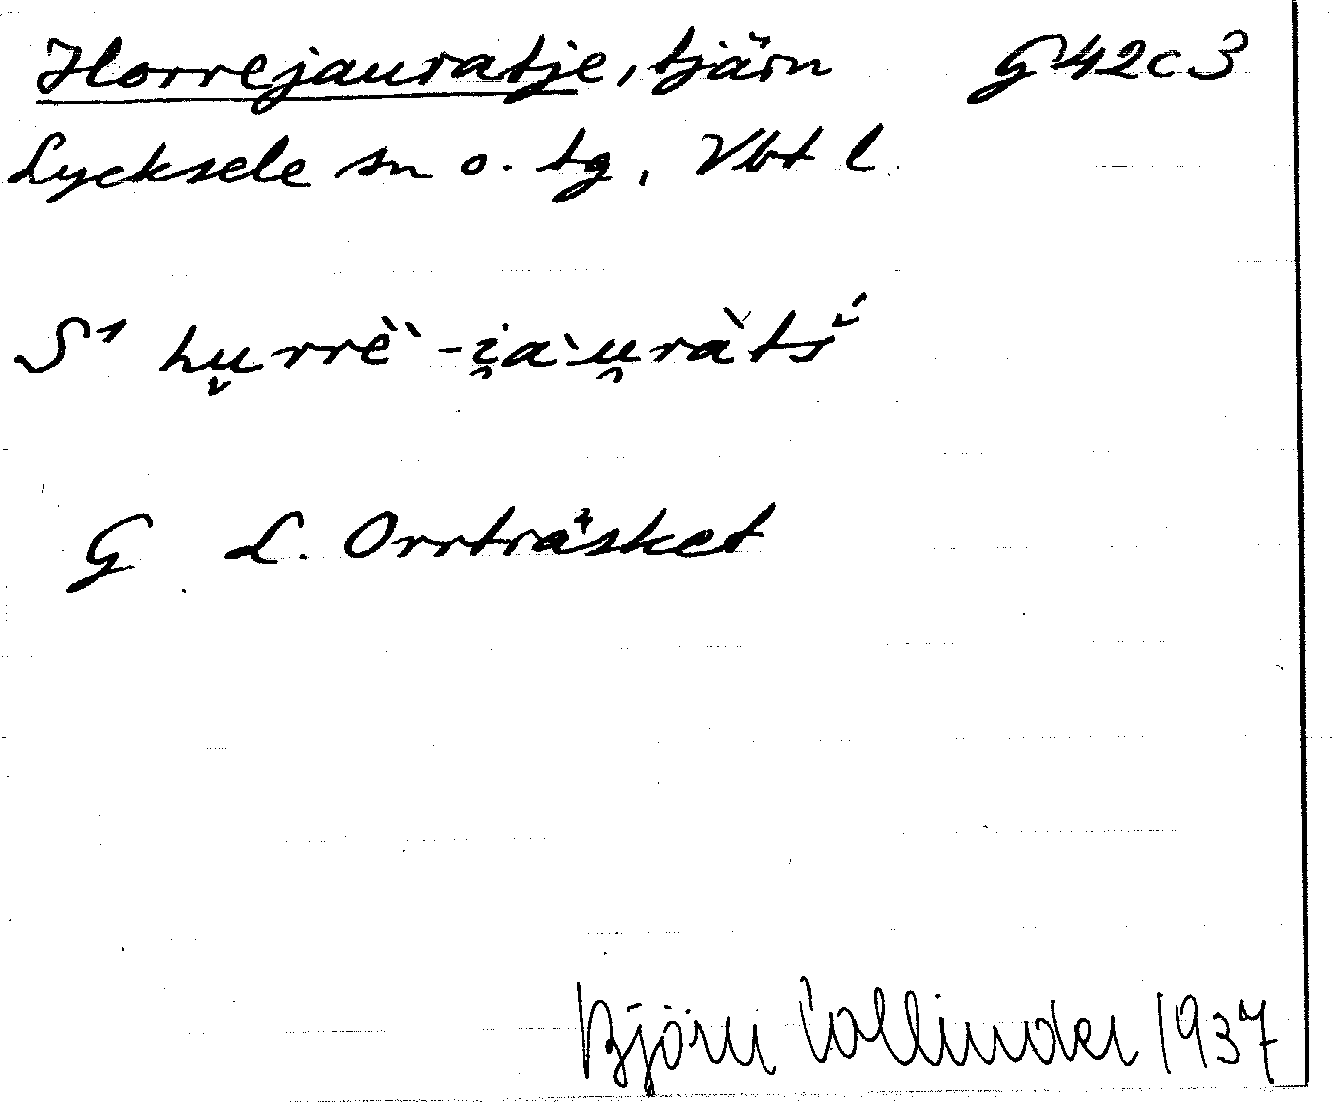 Horrejauratje, tjärn G 42 c 3
Lycksele sn o. tg, Vbt l.
S¹ hu̬rrè̀ -i̯a`u̯ràtš́
G L. Orrträsket
Björn Collinder 1937